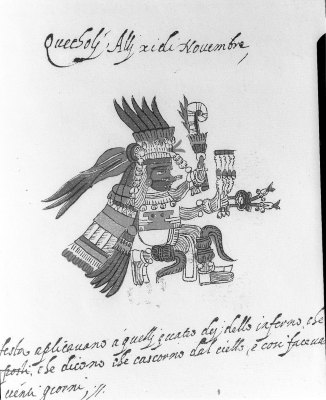 Quecholj. Allj xi di Novembre,
festa aplicavano a quellj quatro dej dello inferno che
, che dicono che cascorno dal cielo, e così faceva
vinti giorni, //.